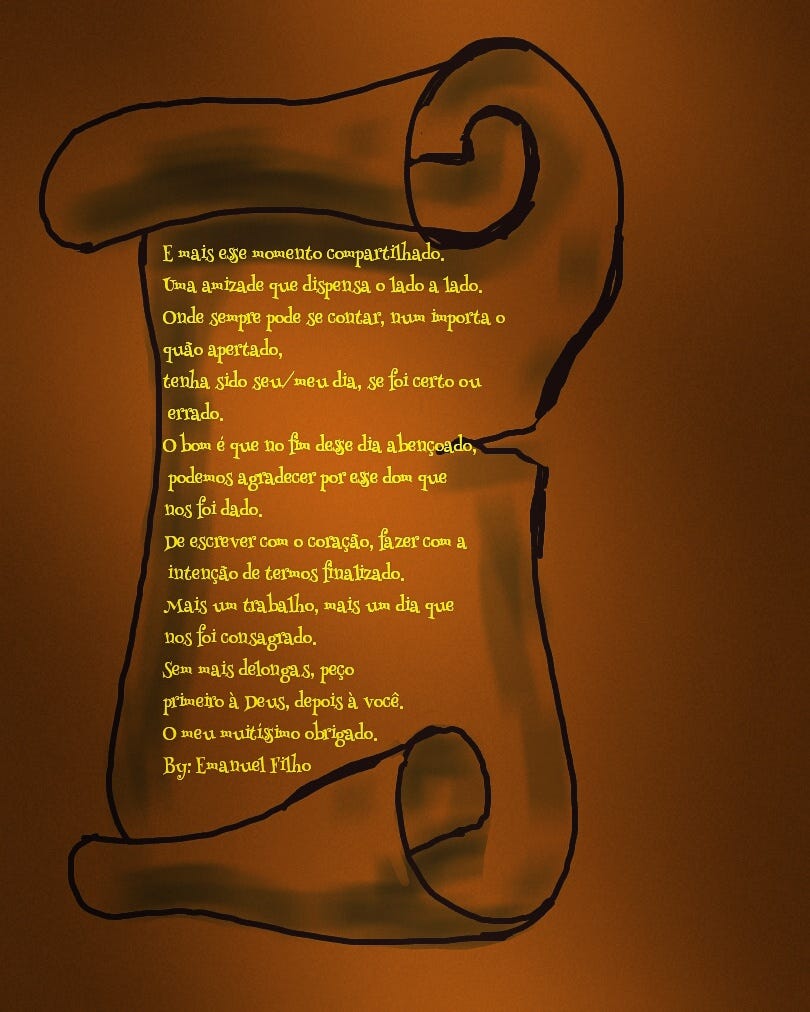 E mais esse momento compartilhado.
Uma amizade que dispensa o lado a lado.
Onde sempre pode se contar, num importa o
quão apertado,
tenha sido seu/meu dia, se foi certo ou
errado.
O bom é que no fim desse dia abençoado,
podemos agradecer por esse dom que
nos foi dado.
De escrever com o coração, fazer com a
intenção de termos finalizado.
Mais um trabalho, mais um dia que
nos foi consagrado.
Sem mais delongas, peço
primeiro à Deus, depois à você.
O meu muitíssimo obrigado.
By: Emanuel Filho